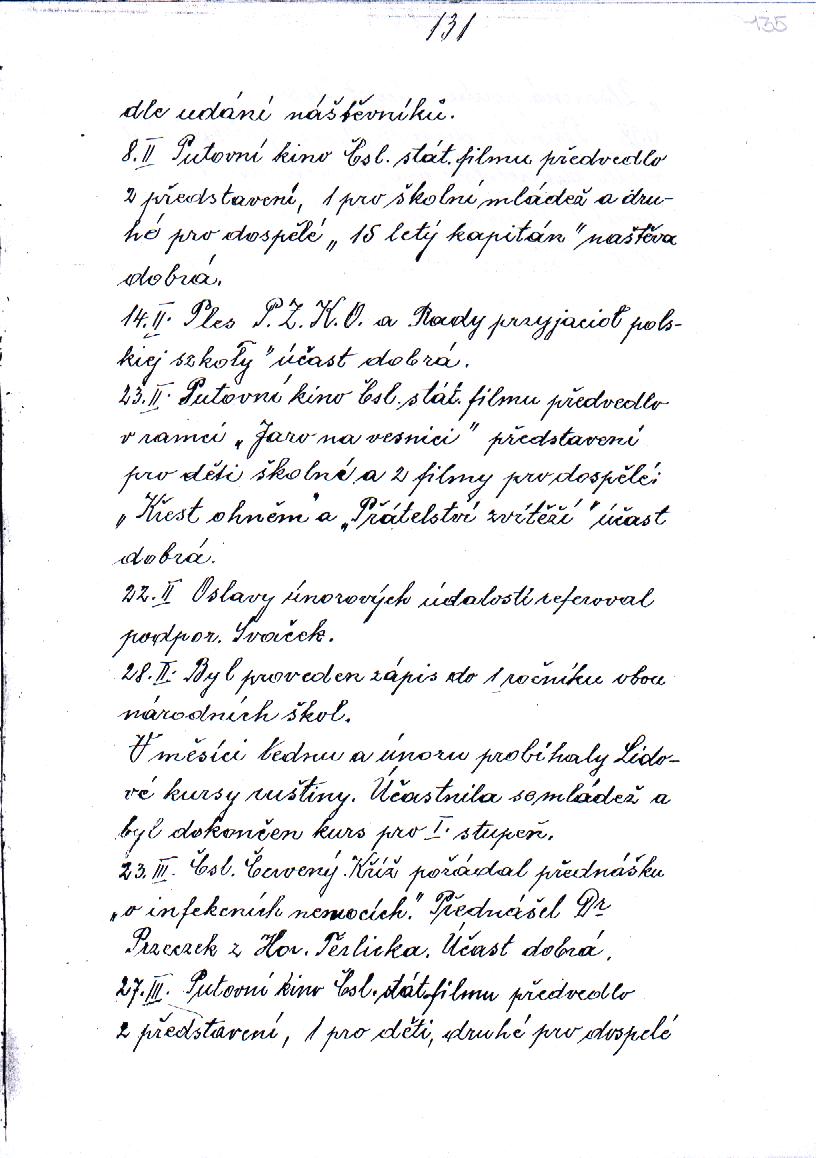 131
135
dle udání náštěvníků.
8.II Putovní kino Čsl. stát. filmu předvedlo
2 představení, 1 pro školní mládež a dru-
hé pro dospělé „15 letý kapitán" naštěva
dobrá.
14.II. Ples P.Z.K.O. a Rady przyjaciół pols-
kiej szkoły" účast dobrá.
23.II. Putovní kino Čsl. stát. filmu předvedlo
v ramci „Jaro na vesnici" představení
pro děti školné a 2 filmy pro dospělé:
„Křest ohněm" a „Přátelství zvítězí" účast
dobrá.
22.II Oslavy únorových údalostí referoval
podpor. Sváček.
28.II. Byl proveden zápis do 1 ročníku obou
národních škol.
V měsíci lednu a únoru probíhaly Lido-
vé kursy ruštiny. Účastnila se mládež a
byl dokončen kurs pro I. stupeň.
23.III. Čsl. Červený Kříž pořádal přednášku
„o infekcních nemocích." Přednášel Dr
Przeczek z Hor. Těrlicka. Účast dobrá.
27.III. Putovní kino Čsl. stát. filmu předvedlo
2 představení, 1 pro děti, druhé pro dospělé